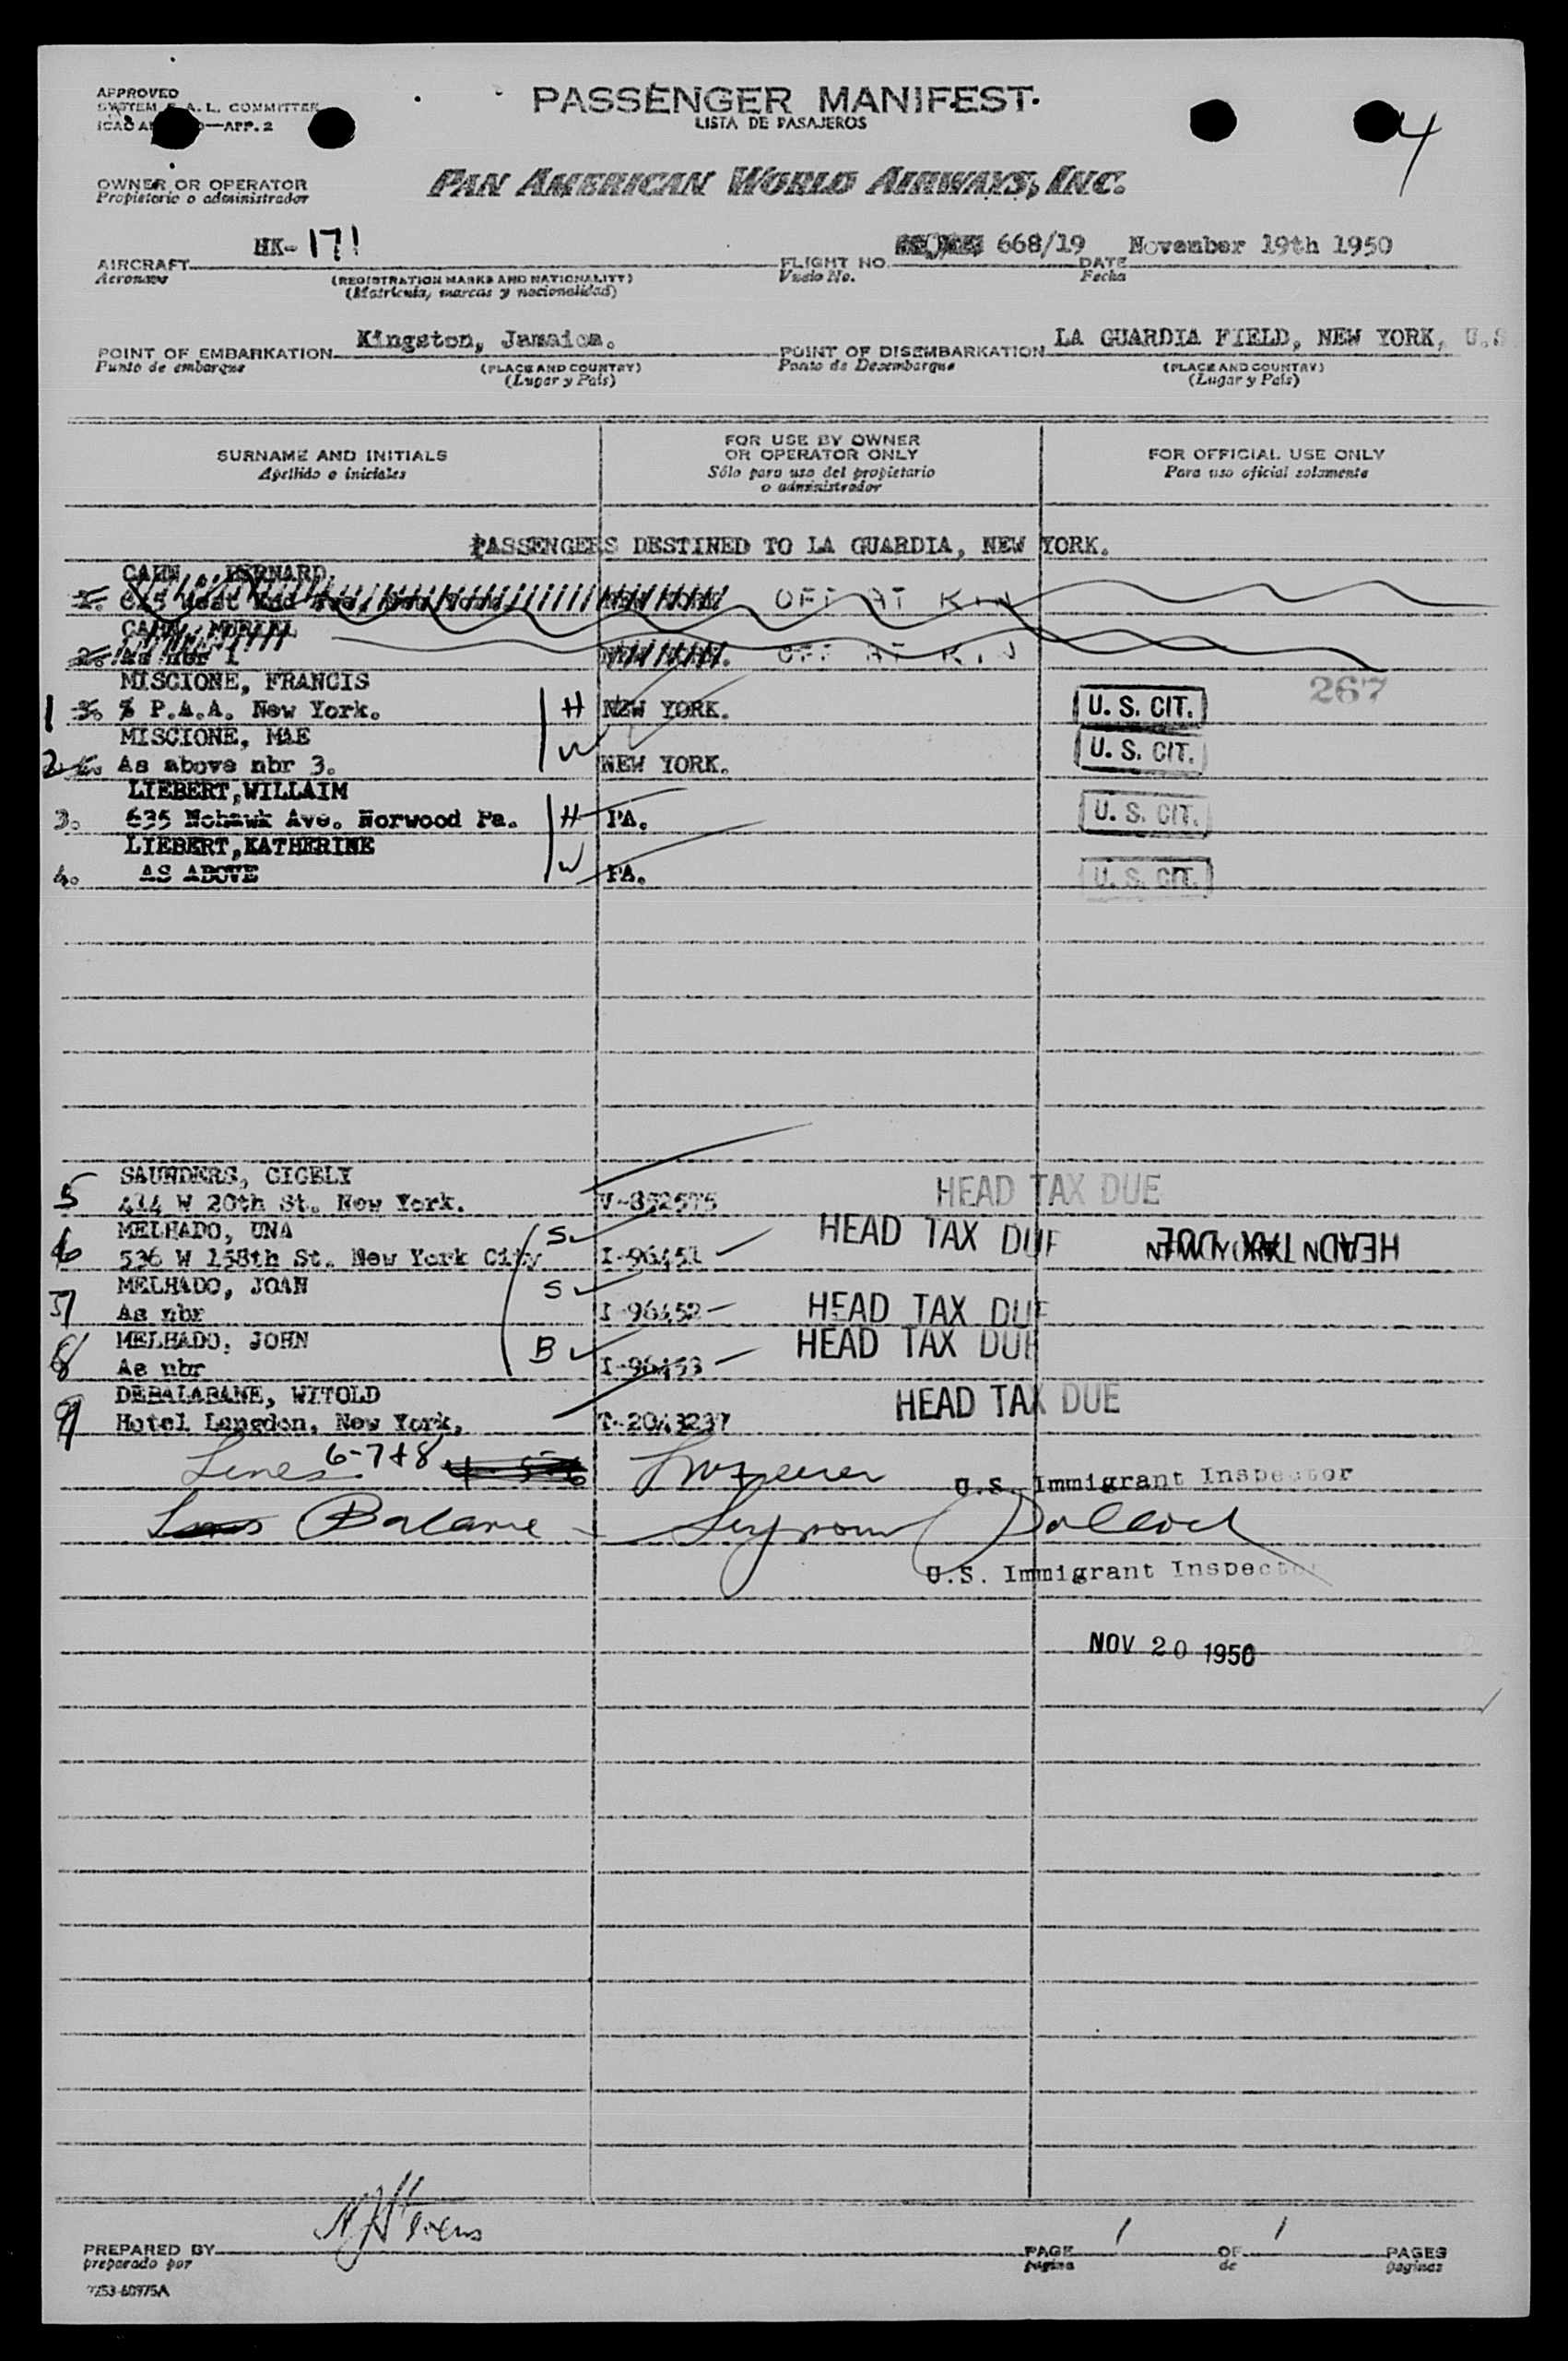 APPROVED
PASSENGER MANIFEST
SYSTEM A.L. COMMITTEE
LISTA DE PASAJEROS
—APP. 2
4
OWNER OR OPERATOR
Propietario o administrador
PAN AMERICAN WORLD AIRWAYS, INC.
AIRCRAFT HK-171
Aeronave
(REGISTRATION MARKS AND NATIONALITY)
(Matrícula, marcas y nacionalidad)
FLIGHT NO. 668/19
Vuelo No.
DATE November 19th 1950
Fecha
POINT OF EMBARKATION Kingston, Jamaica.
Punto de embarque
(PLACE AND COUNTRY)
(Lugar y País)
POINT OF DISEMBARKATION LA GUARDIA FIELD, NEW YORK, U.S
Punto de Desembarque
(PLACE AND COUNTRY)
(Lugar y País)
SURNAME AND INITIALS
Apellido e iniciales
FOR USE BY OWNER
OR OPERATOR ONLY
Sólo para uso del propietario
o administrador
FOR OFFICIAL USE ONLY
Para uso oficial solamente
PASSENGERS DESTINED TO LA GUARDIA, NEW YORK.
CAHN, BERNARD
OFF AT KIN
CAHN,
2. As nbr 1 OFF AT KIN
MISCIONE, FRANCIS
267
1 3. % P.A.A. New York. H NEW YORK. U. S. CIT.
MISCIONE, MAE
2 As above nbr 3. W NEW YORK. U. S. CIT.
LIEBERT,WILLAIM
3. 635 Mohawk Ave. Norwood Pa. H PA. U. S. CIT.
LIEBERT,KATHERINE
4. AS ABOVE W PA. U. S. CIT.
SAUNDERS, CICELY
5 414 W 20th St. New York. V-852575 HEAD TAX DUE
MELHADO, UNA
6 536 W 158th St. New York City S I-96451 HEAD TAX DUE HEAD TAX DUE
MELHADO, JOAN
7 As nbr S I-96452 HEAD TAX DUE
MELHADO, JOHN
8 As nbr B I-96453 HEAD TAX DUE
DEBALABANE, WITOLD
9 Hotel Langdon, New York, T-2043237 HEAD TAX DUE
Lines 6-7+8
U.S. Immigrant Inspector
Balance - Seymour
U.S. Immigrant Inspector
NOV 20 1950
PREPARED BY
preparado por
PAGE 1 OF 1 PAGES
página de páginas